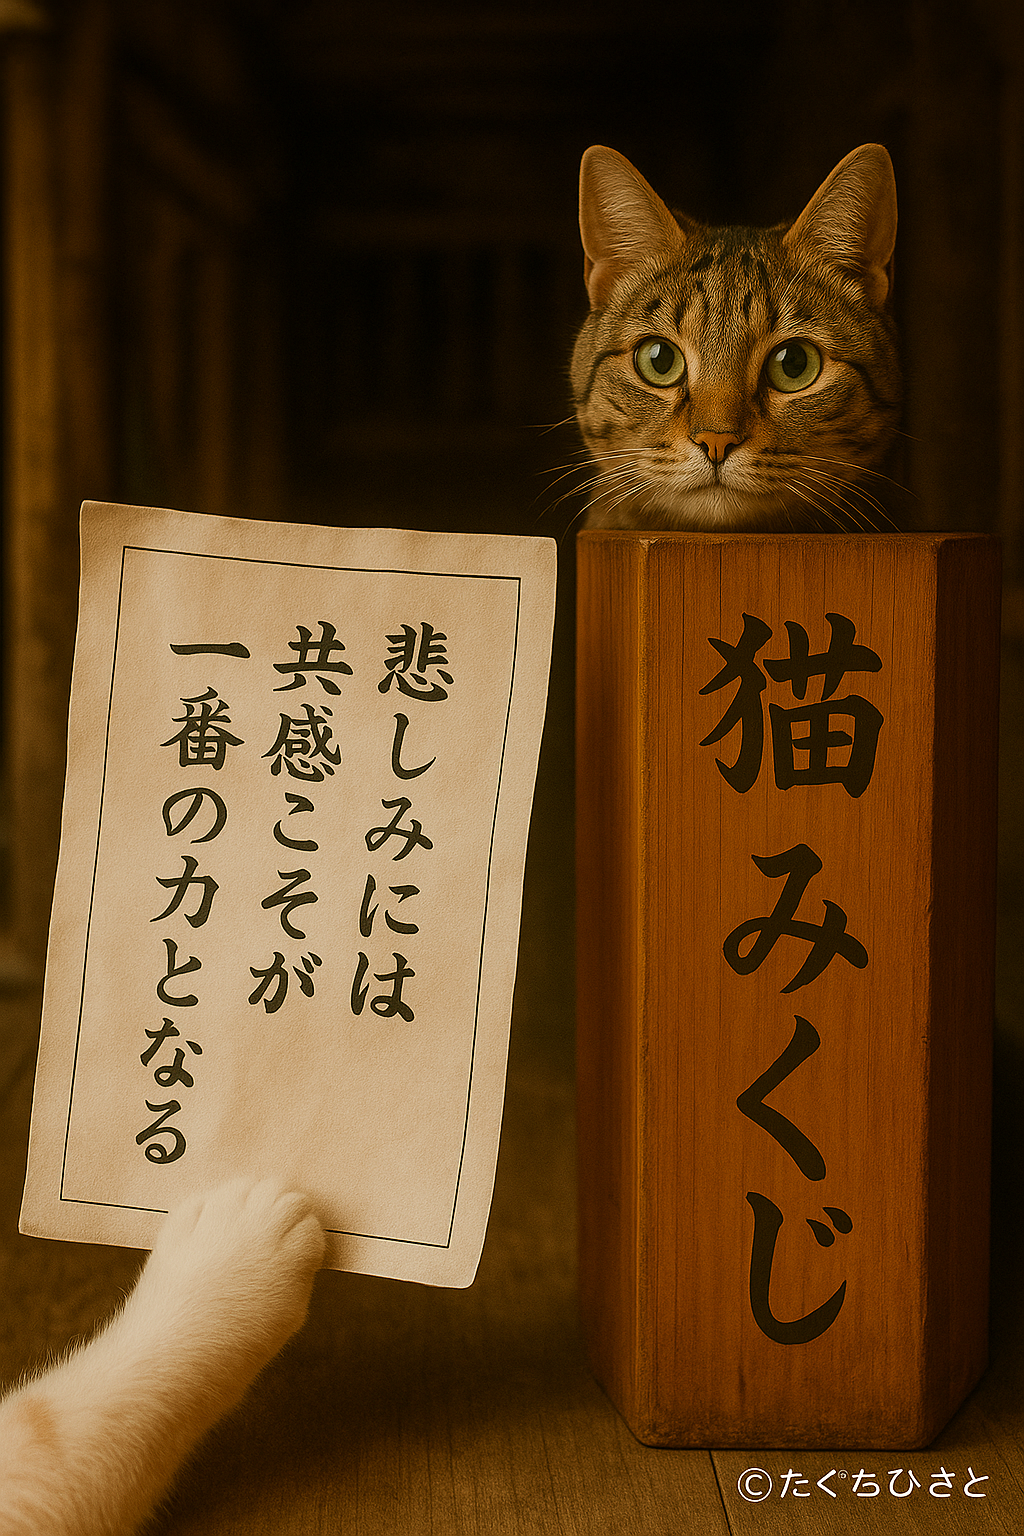 悲しみには
共感こそが
一番の力となる
猫みくじ
©たぐちひさと